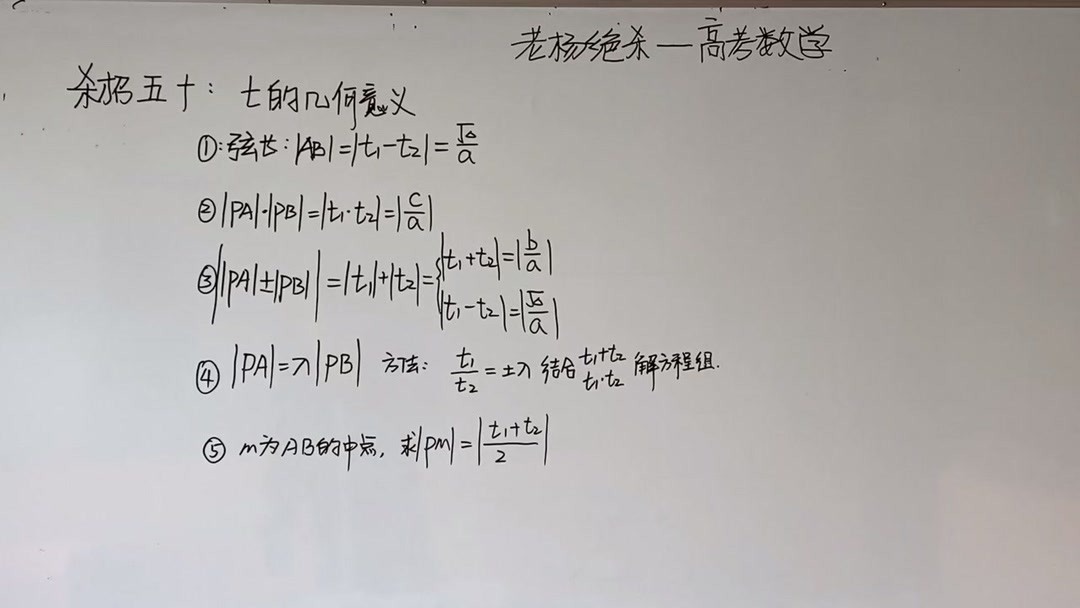 老杨绝杀一高考数学
杀招五十：t的几何意义
①:弦长:|AB|=|t₁-t₂|=√Δ/a
②|PA|·|PB|=|t₁·t₂|=|c/a|
③||PA|±|PB||=|t₁|+|t₂|={|t₁+t₂|=|b/a|
|t₁-t₂|=|√Δ/a|
④|PA|=λ|PB| 方法: t₁/t₂=±λ 结合 t₁+t₂ t₁·t₂ 解方程组.
⑤ m为AB的中点, 求|PM|=|(t₁+t₂)/2|